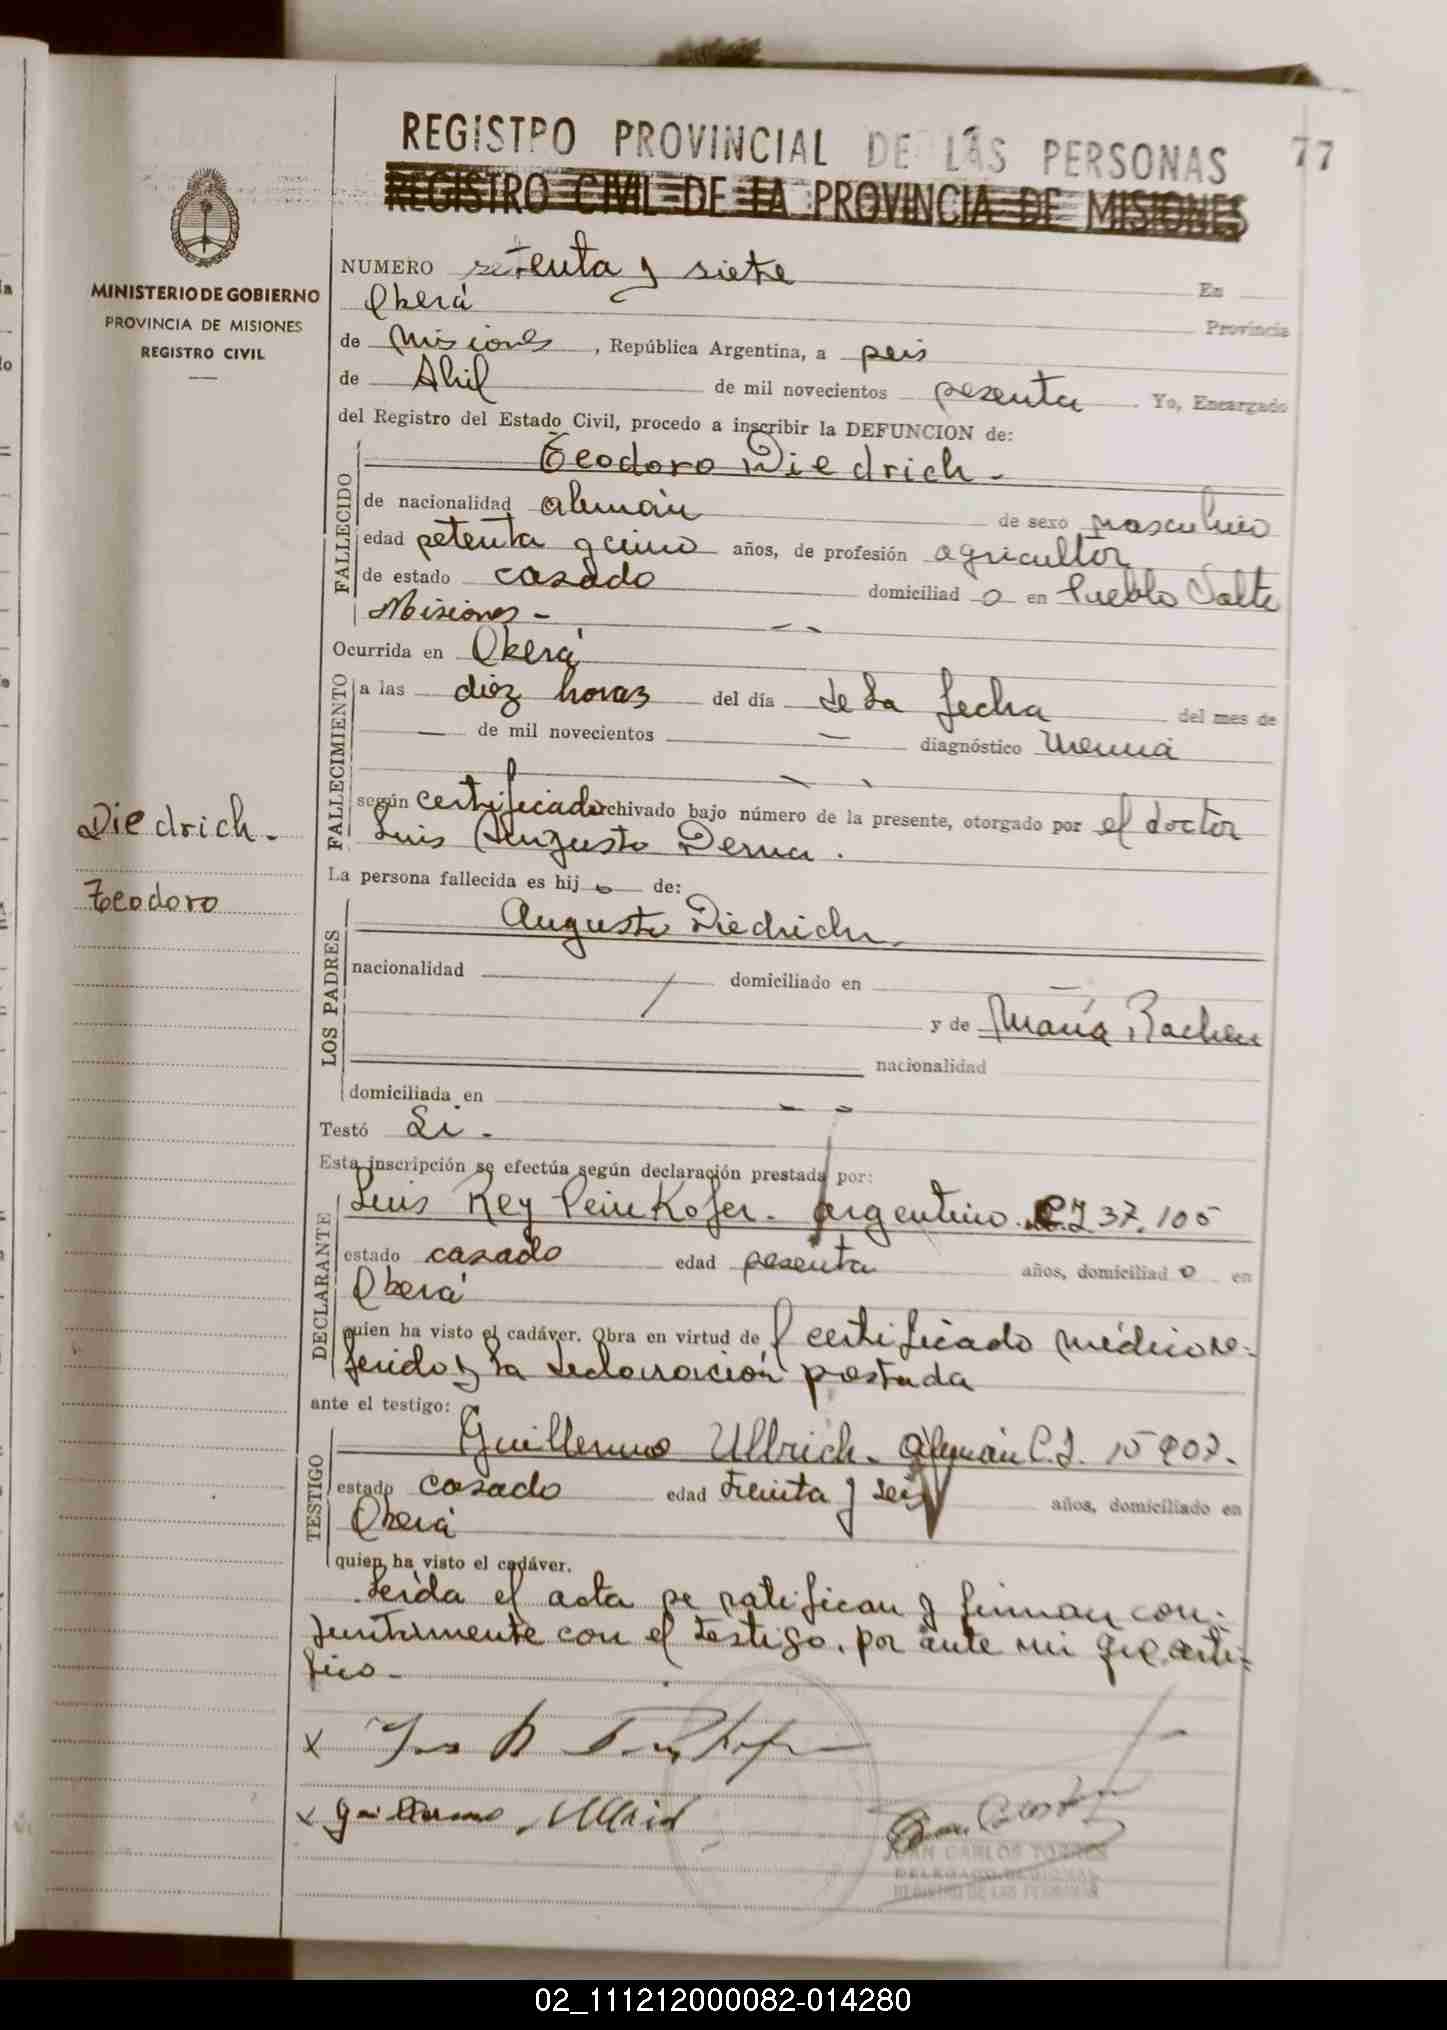 REGISTRO PROVINCIAL DE LAS PERSONAS
77
REGISTRO CIVIL DE LA PROVINCIA DE MISIONES
MINISTERIO DE GOBIERNO
PROVINCIA DE MISIONES
REGISTRO CIVIL
NUMERO setenta y siete En
Oberá Provincia
de Misiones, República Argentina, a seis
de Abril de mil novecientos sesenta Yo, Encargado
del Registro del Estado Civil, procedo a inscribir la DEFUNCION de:
FALLECIDO
Teodoro Diedrich.
de nacionalidad alemán de sexo masculino
edad setenta y cinco años, de profesión agricultor
de estado casado domiciliado en Pueblo Salto
Misiones -
Ocurrida en Oberá
FALLECIMIENTO
a las diez horas del día de la fecha del mes de
— de mil novecientos — diagnóstico Uremia
según certificado archivado bajo número de la presente, otorgado por el doctor
Luis Augusto Derna.
Diedrich.
Teodoro
La persona fallecida es hijo de:
LOS PADRES
Augusto Diedrich.
nacionalidad domiciliado en
y de María
nacionalidad
domiciliada en
Testó Si.
Esta inscripción se efectúa según declaración prestada por:
DECLARANTE
Luis Rey Peinkofer. argentino. C.I 37.105
estado casado edad sesenta años, domiciliado en
Oberá
quien ha visto el cadáver. Obra en virtud del certificado médico re-
ferido y la declaración prestada
ante el testigo:
TESTIGO
Guillermo Ullrich. alemán C.I. 15907.
estado casado edad treinta y seis años, domiciliado en
Oberá
quien ha visto el cadáver.
Leída el acta se ratifican y firman con-
juntamente con el testigo, por ante mi que certi-
fico.
x
x Guillermo Ullrich
JUAN CARLOS TORRES
02_111212000082-014280